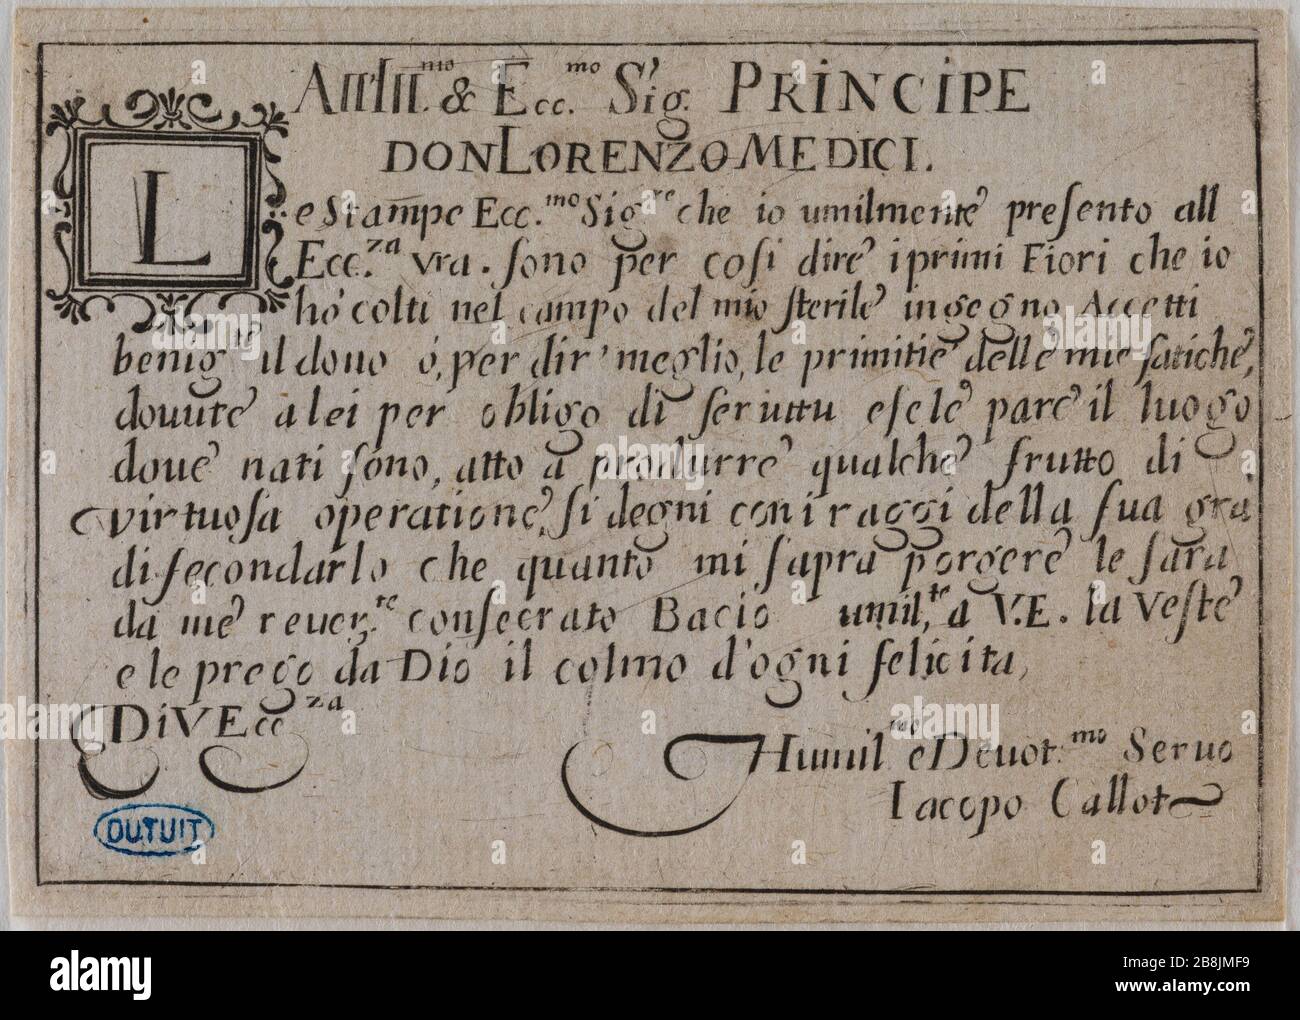 All Ill.mo & Ecc.mo Sig.r PRINCIPE
DON LORENZO MEDICI.
Le Stampe Ecc.mo Sig.re che io umilmente presento all
Ecc.za vra. sono per cosi dire i primi Fiori che io
hò colti nel campo del mio sterile ingegno, Accetti
benig.te il dono ò, per dir' meglio, le primitie delle mie fatiche,
douute a lei per obligo di seruitu e se le pare il luogo
doue nati sono, atto a produrre qualche frutto di
virtuosa operatione, si degni con i raggi della sua gra
di fecondarlo che quanto mi sapra porgere le sara
da me reuer.te consecrato Bacio umil.te a V.E. la Veste
e le prego da Dio il colmo d'ogni felicita,
Di V Ecc.za
Humil.mo e Deuot.mo Seruo
Iacopo Callot
DUTUIT
alamy
Image ID: 2B8JMF9
www.alamy.com